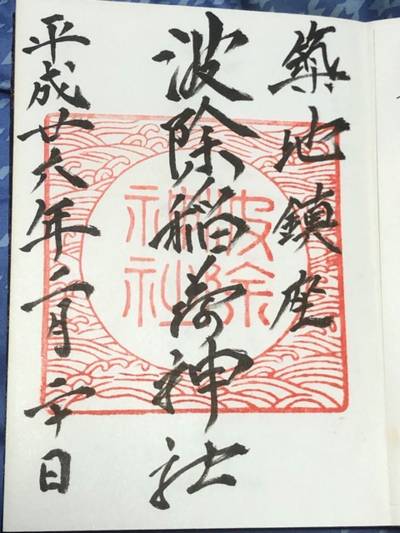 築地鎮座
波除稲荷神社
平成廿六年二月二十日
波除
神社